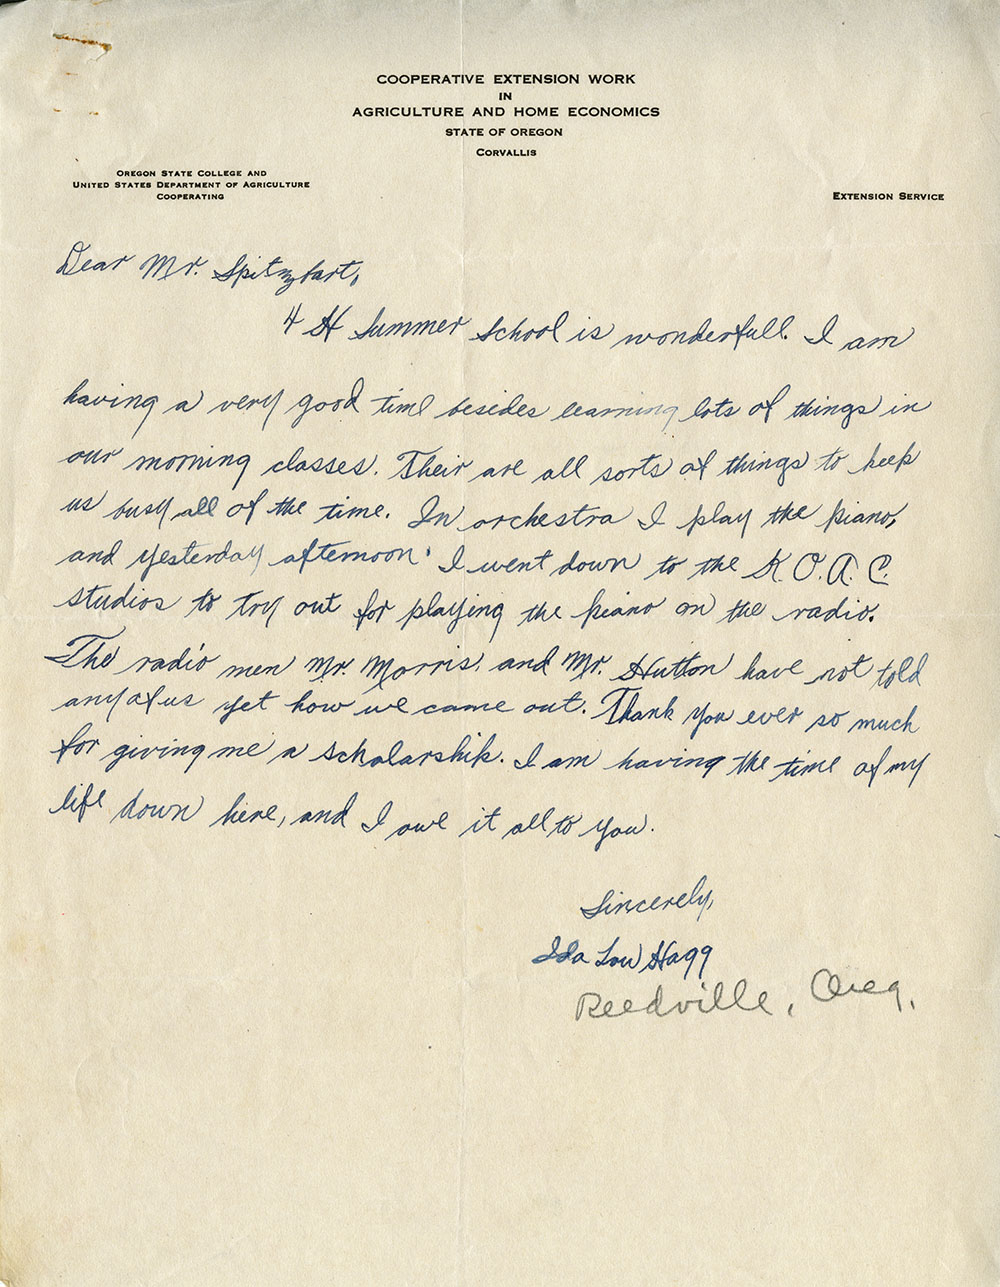 COOPERATIVE EXTENSION WORK
IN
AGRICULTURE AND HOME ECONOMICS
STATE OF OREGON
CORVALLIS
OREGON STATE COLLEGE AND
UNITED STATES DEPARTMENT OF AGRICULTURE
COOPERATING
EXTENSION SERVICE
Dear Mr. Spitzbart,
4 H Summer School is wonderfull. I am
having a very good time besides learning lots of things in
our morning classes. Their are all sorts of things to keep
us busy all of the time. In orchestra I play the piano,
and yesterday afternoon I went down to the K.O.A.C.
studios to try out for playing the piano on the radio.
The radio men Mr. Morris, and Mr. Hutton have not told
any of us yet how we came out. Thank you ever so much
for giving me a scholarship. I am having the time of my
life down here, and I owe it all to you.
Sincerely,
Ida Lou Hagg
Reedville, Oreg.